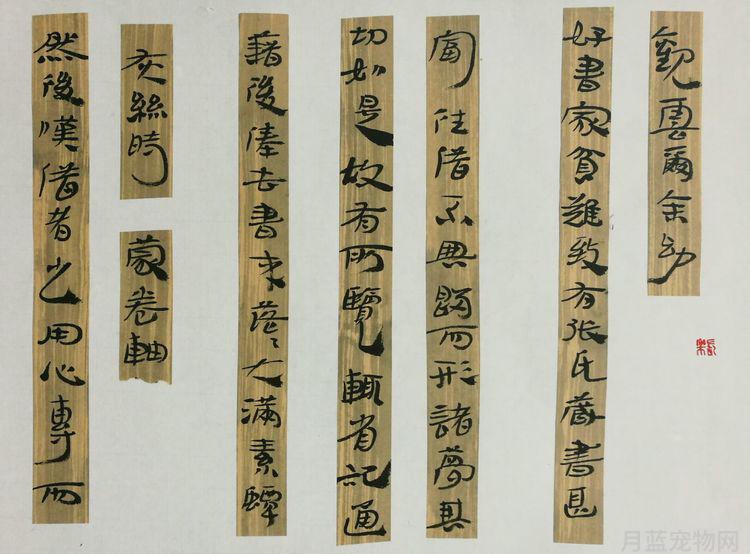 觀雲爾余幼
好書家貧難致有张氏藏書甚
富往借不與歸而形諸夢其
切如是故有所覽輒省記通
藉後俸去書来落々大滿素蟫
灰絲時
蒙卷軸
然後嘆借者之用心專而
月蓝宠物网